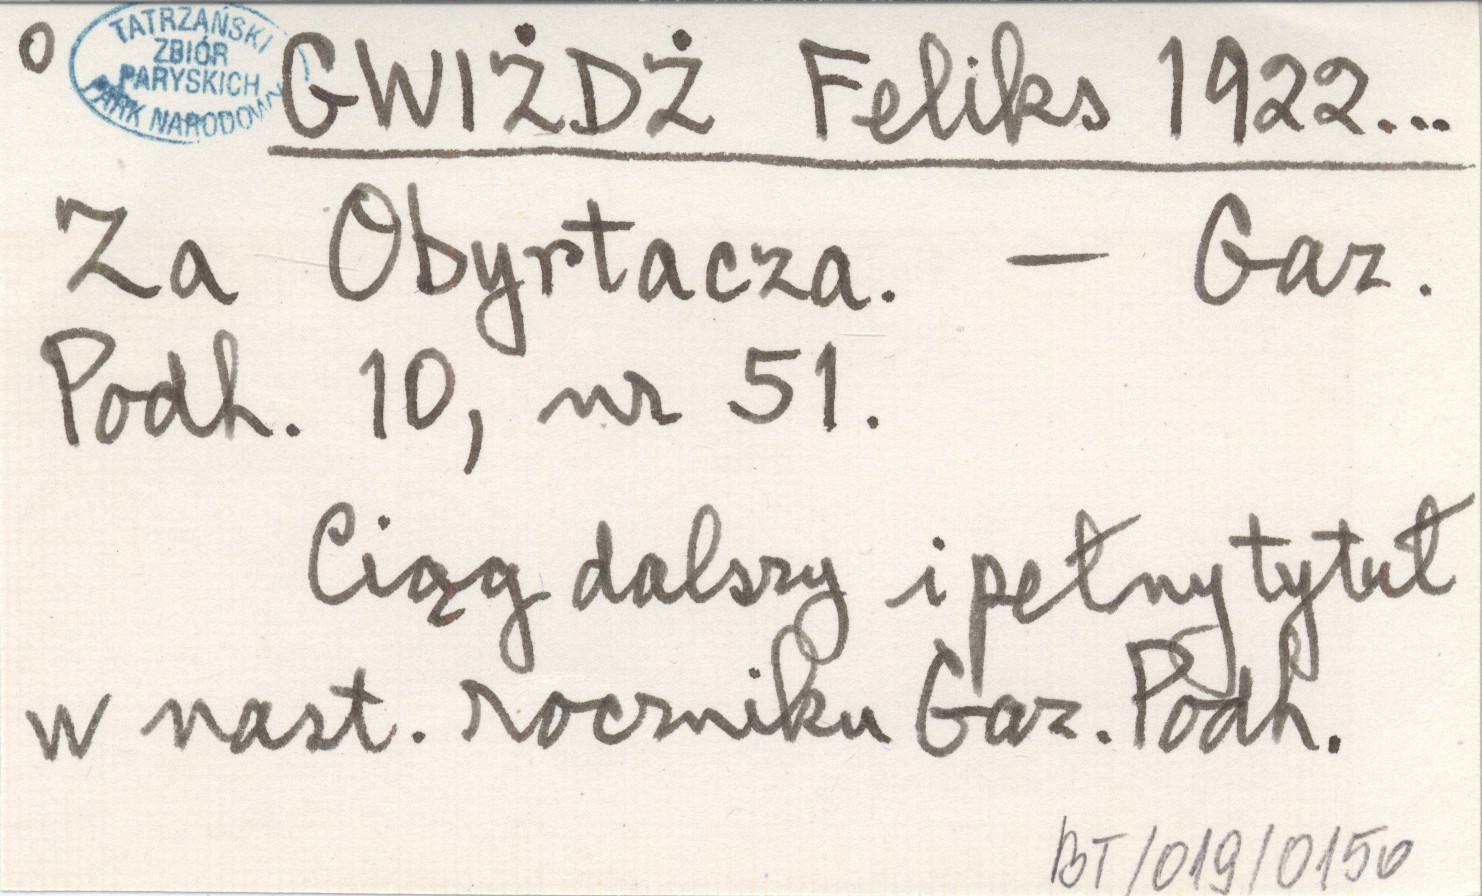 O
TATRZAŃSKI
ZBIÓR
PARYSKICH
PARK NARODOWY
GWIŻDŻ Feliks 1922...
Za Obyrtacza. — Gaz.
Podh. 10, nr 51.
Ciąg dalszy i pełny tytuł
w nast. roczniku Gaz. Podh.
BT/019/0150